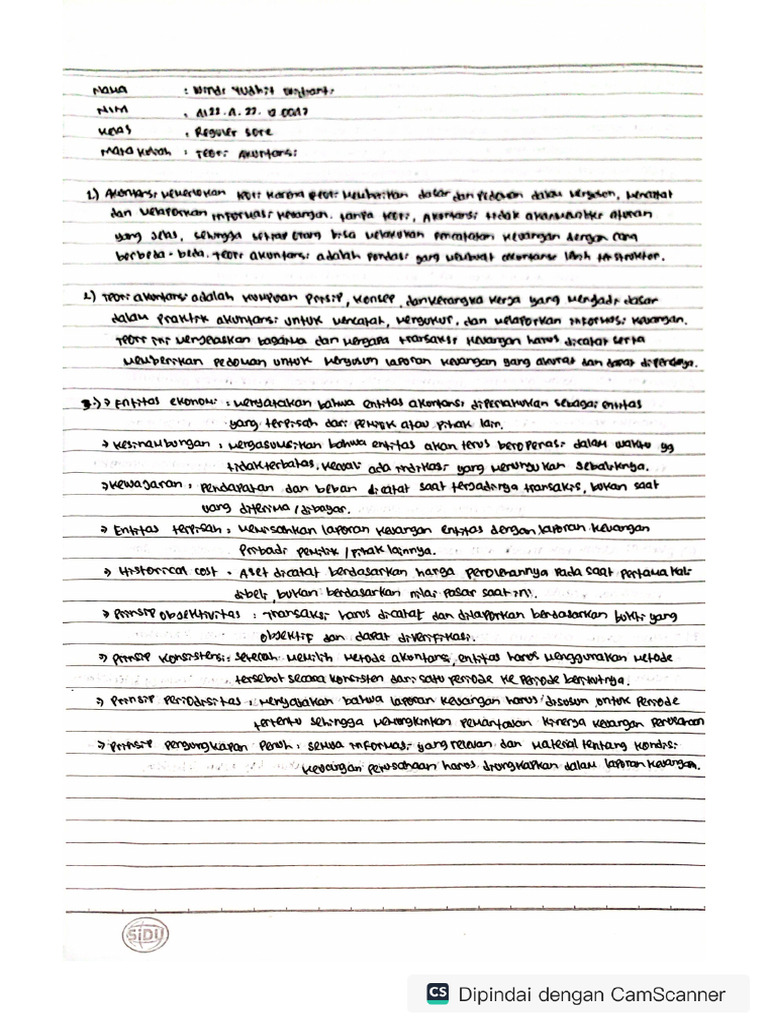 Nama :
NIM :
Kelas : Reguler Sore
Mata Kuliah : Teori Akuntansi
1.) Akuntansi memerlukan teori karena teori memberikan dasar dan pedoman dalam menyusun, mencatat
dan melaporkan informasi keuangan. tanpa teori, Akuntansi tidak akan memiliki aturan
yang jelas, sehingga setiap orang bisa melakukan pencatatan keuangan dengan cara
berbeda-beda. Teori akuntansi adalah pondasi yang membuat akuntansi lebih terstruktur.
2.) Teori akuntansi adalah kumpulan prinsip, konsep, dan kerangka kerja yang menjadi dasar
dalam praktik akuntansi untuk mencatat, mengukur, dan melaporkan informasi keuangan.
Teori ini menjelaskan bagaimana dan mengapa transaksi keuangan harus dicatat serta
memberikan pedoman untuk menyusun laporan keuangan yang akurat dan dapat dipercaya.
3.) → Entitas ekonomi : menyatakan bahwa entitas akuntansi diperlakukan sebagai entitas
yang terpisah dari pemilik atau pihak lain.
→ Kesinambungan : mengasumsikan bahwa entitas akan terus beroperasi dalam waktu yg
tidak terbatas, kecuali ada indikasi yang menunjukan sebaliknya.
→ Kewajaran : pendapatan dan beban dicatat saat terjadinya transaksi, bukan saat
uang diterima / dibayar.
→ Entitas terpisah : Memisahkan laporan keuangan entitas dengan laporan keuangan
Pribadi pemilik / pihak lainnya.
→ Historical cost - Aset dicatat berdasarkan harga perolehannya pada saat pertama kali
dibeli, bukan berdasarkan nilai pasar saat ini.
→ Prinsip objektivitas : Transaksi harus dicatat dan dilaporkan berdasarkan bukti yang
objektif dan dapat diverifikasi.
→ Prinsip konsistensi : setelah memilih metode akuntansi, entitas harus menggunakan metode
tersebut secara konsisten dari satu periode ke periode berikutnya.
→ Prinsip periodisitas : menyatakan bahwa laporan keuangan harus disusun untuk periode
tertentu sehingga memungkinkan pemantauan kinerja keuangan perusahaan
→ Prinsip pengungkapan penuh : semua informasi yang relevan dan material tentang kondisi
keuangan perusahaan harus diungkapkan dalam laporan keuangan.
SIDU
CS Dipindai dengan CamScanner